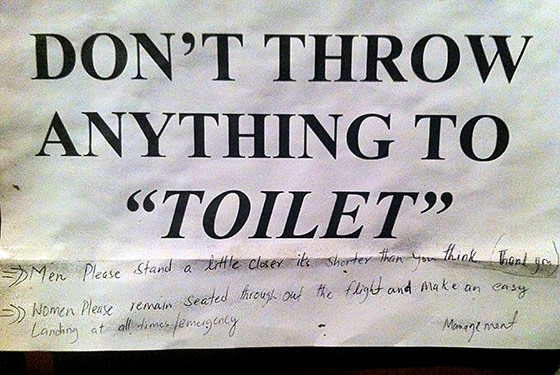 DON'T THROW
ANYTHING TO
“TOILET”
⇒ Men Please Stand a little closer its shorter than you think (Thank you)
⇒ Women Please remain seated through out the flight and make an easy
Landing at all times/emergency
Management